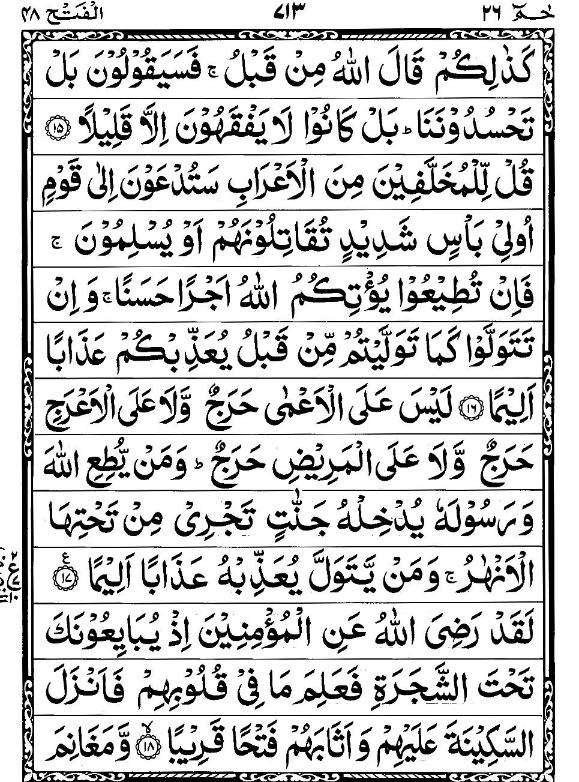 حٰمٓ ٢٦ ٧١٣ الۡفَتۡح ٤٨
كَذٰلِكُمۡ قَالَ اللّٰهُ مِنۡ قَبۡلُ ۚ فَسَيَقُوۡلُوۡنَ بَلۡ
تَحۡسُدُوۡنَنَا ؕ بَلۡ كَانُوۡا لَا يَفۡقَهُوۡنَ اِلَّا قَلِيۡلًا ﴿۱۵﴾
قُلۡ لِّلۡمُخَلَّفِيۡنَ مِنَ الۡاَعۡرَابِ سَتُدۡعَوۡنَ اِلٰى قَوۡمٍ
اُولِىۡ بَاۡسٍ شَدِيۡدٍ تُقَاتِلُوۡنَهُمۡ اَوۡ يُسۡلِمُوۡنَ ۚ
فَاِنۡ تُطِيۡعُوۡا يُؤۡتِكُمُ اللّٰهُ اَجۡرًا حَسَنًا ۚ وَ اِنۡ
تَتَوَلَّوۡا كَمَا تَوَلَّيۡتُمۡ مِّنۡ قَبۡلُ يُعَذِّبۡكُمۡ عَذَابًا
اَلِيۡمًا ﴿۱۶﴾ لَيۡسَ عَلَى الۡاَعۡمٰى حَرَجٌ وَّلَا عَلَى الۡاَعۡرَجِ
حَرَجٌ وَّلَا عَلَى الۡمَرِيۡضِ حَرَجٌ ؕ وَمَنۡ يُّطِعِ اللّٰهَ
وَرَسُوۡلَهٗ يُدۡخِلۡهُ جَنّٰتٍ تَجۡرِىۡ مِنۡ تَحۡتِهَا
الۡاَنۡهٰرُ ۚ وَمَنۡ يَّتَوَلَّ يُعَذِّبۡهُ عَذَابًا اَلِيۡمًا ﴿۱۷﴾ ع
لَقَدۡ رَضِىَ اللّٰهُ عَنِ الۡمُؤۡمِنِيۡنَ اِذۡ يُبَايِعُوۡنَكَ
تَحۡتَ الشَّجَرَةِ فَعَلِمَ مَا فِىۡ قُلُوۡبِهِمۡ فَاَنۡزَلَ
السَّكِيۡنَةَ عَلَيۡهِمۡ وَ اَثَابَهُمۡ فَتۡحًا قَرِيۡبًا ۙ﴿۱۸﴾ وَّمَغَانِمَ